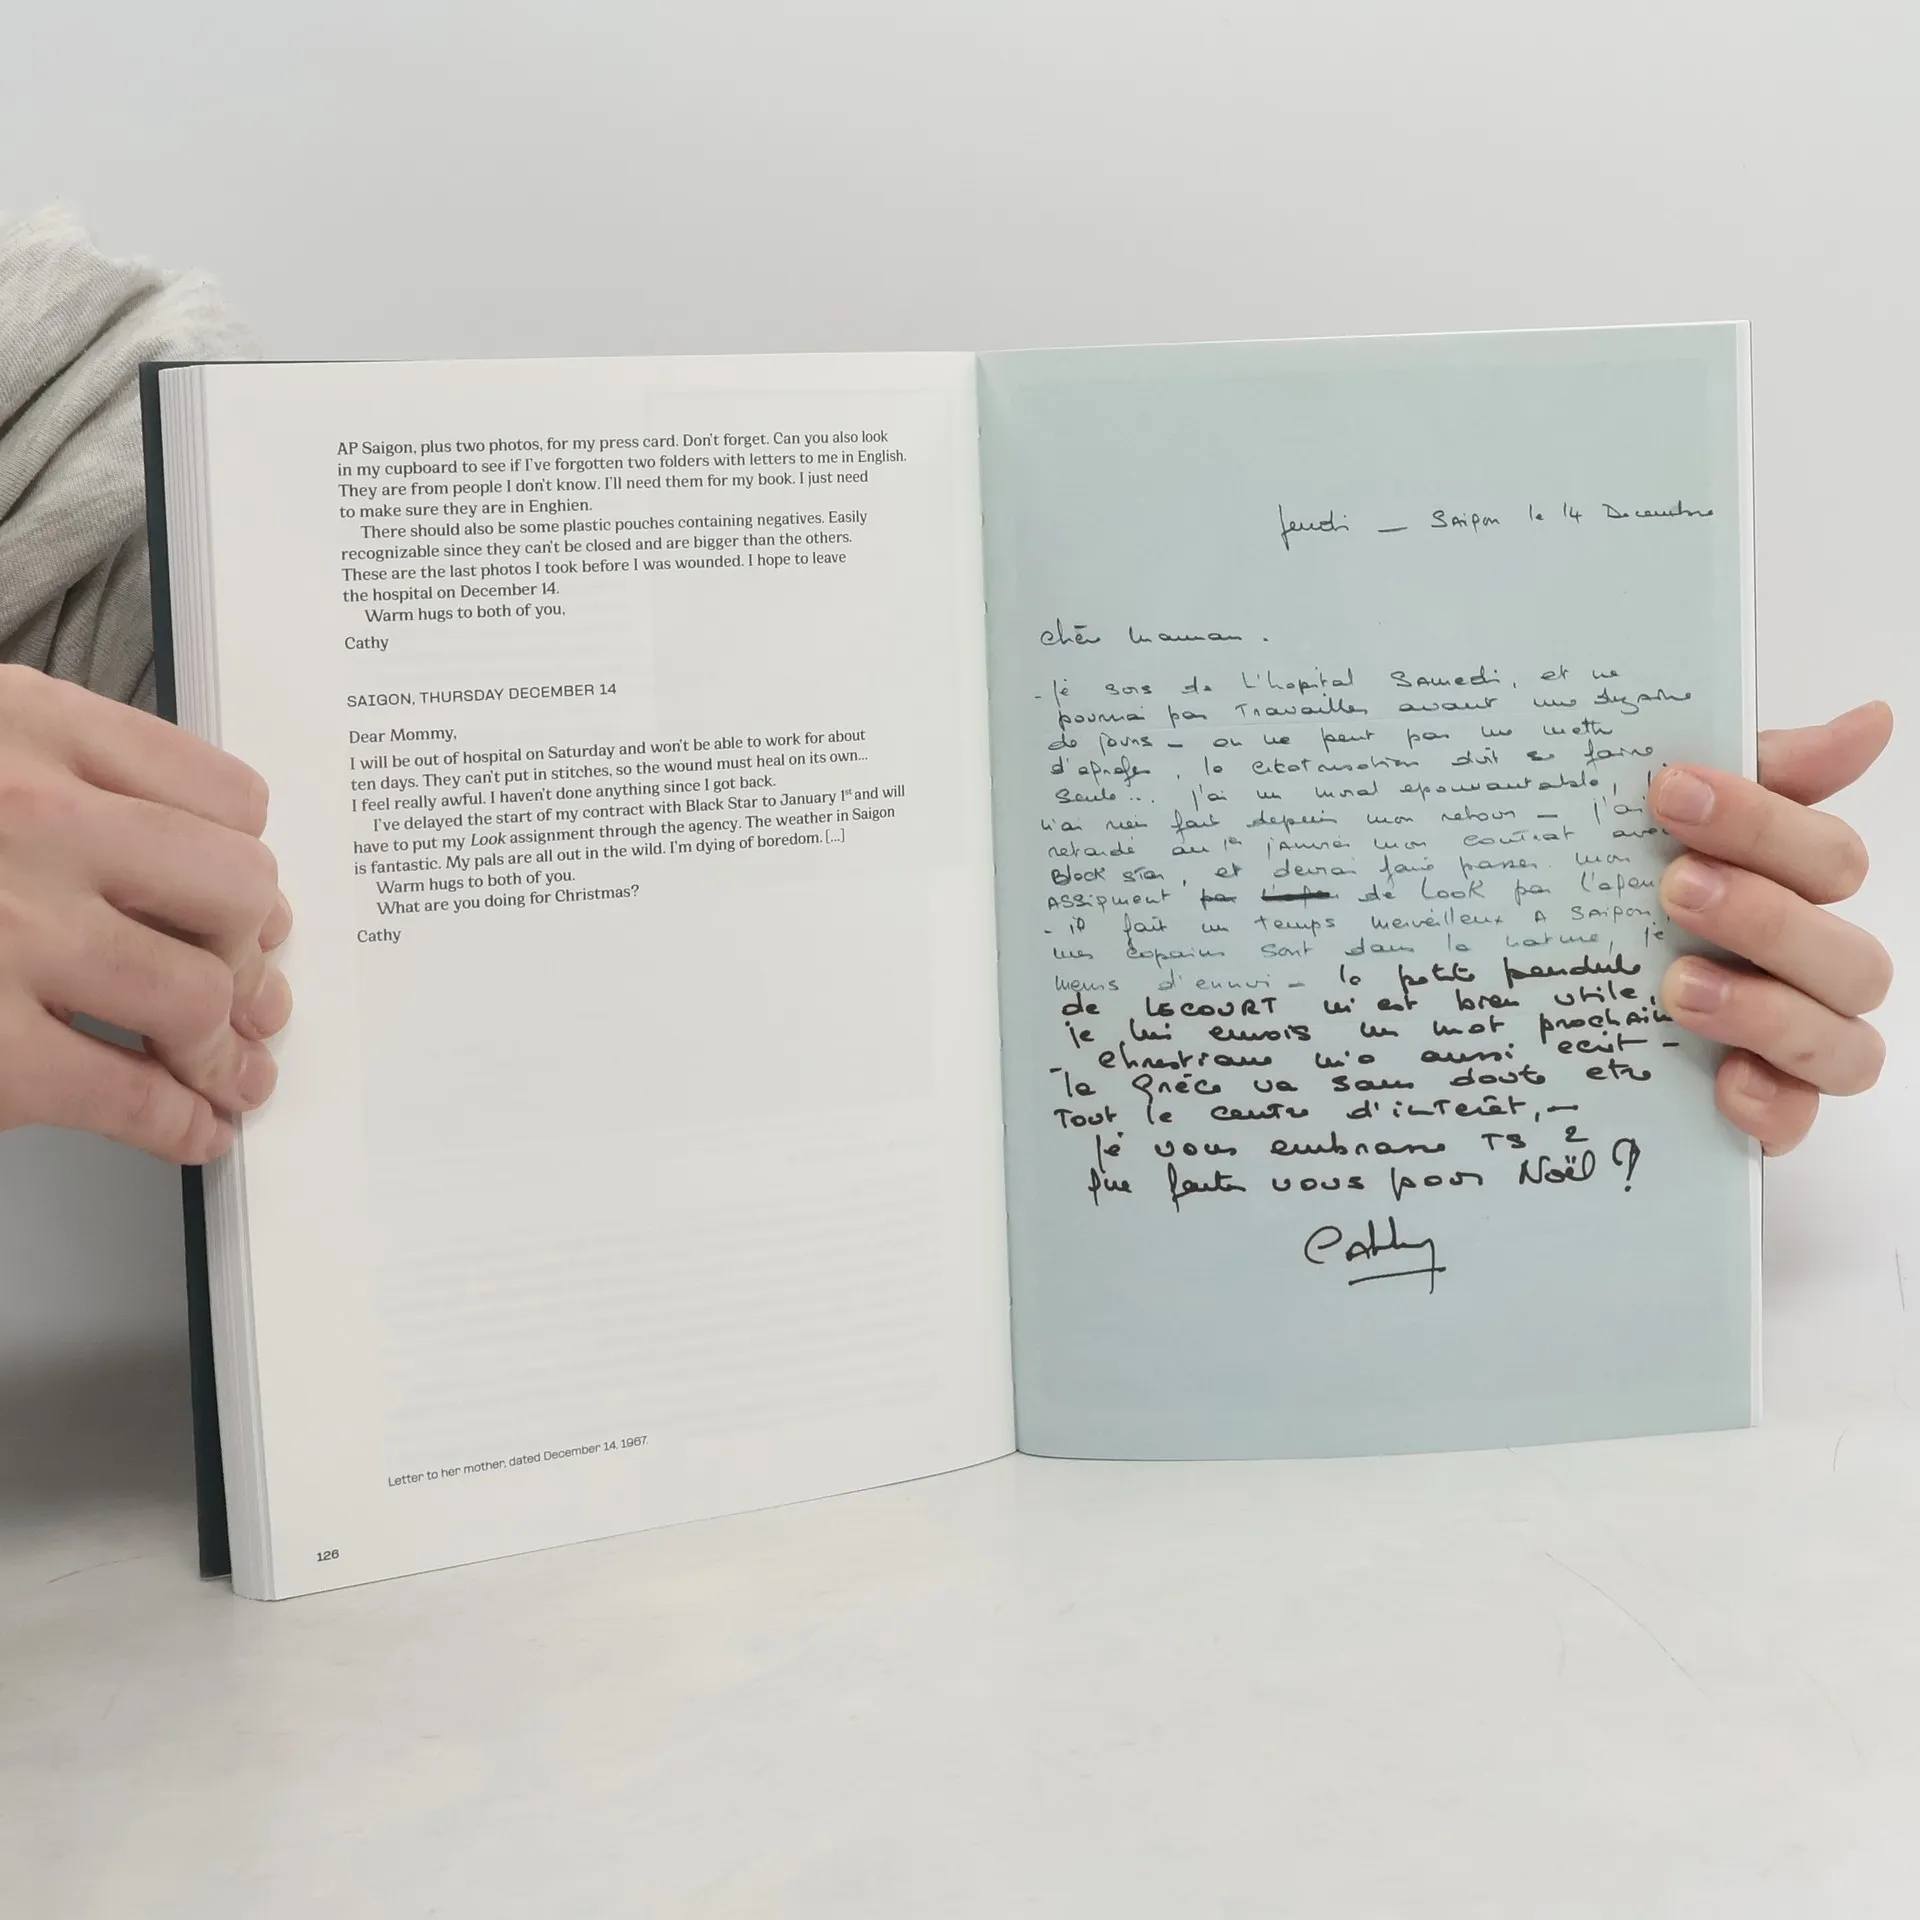 AP Saigon, plus two photos, for my press card. Don't forget. Can you also look
in my cupboard to see if I've forgotten two folders with letters to me in English.
They are from people I don't know. I'll need them for my book. I just need
to make sure they are in Enghien.
There should also be some plastic pouches containing negatives. Easily
recognizable since they can't be closed and are bigger than the others.
These are the last photos I took before I was wounded. I hope to leave
the hospital on December 14.
Warm hugs to both of you,
Cathy
SAIGON, THURSDAY DECEMBER 14
Dear Mommy,
I will be out of hospital on Saturday and won't be able to work for about
ten days. They can't put in stitches, so the wound must heal on its own...
I feel really awful. I haven't done anything since I got back.
I've delayed the start of my contract with Black Star to January 1st and will
have to put my Look assignment through the agency. The weather in Saigon
is fantastic. My pals are all out in the wild. I'm dying of boredom. [...]
Warm hugs to both of you.
What are you doing for Christmas?
Cathy
Letter to her mother, dated December 14, 1967.
126
Jeudi — Saigon le 14 Decembre
chère maman.
- je sors de L'hopital Samedi, et ne
pourrai pas Travailler avant une dizaine
de jours - on ne peut pas me mettre
d'agrafes, la doit se faire
seule... j'ai un moral epouvantable, je
n'ai rien fait depuis mon retour — j'ai
retardé au 1er janvier mon contrat avec
Black Star, et devrai faire passer mon
ASSIGNMENT de Look par l'agen
- il fait un temps merveilleux A Saigon,
mes copains sont dans la nature, je
meurs d'ennui - la petite pendule
de LECOURT m'est bien utile,
je lui envois un mot prochain
- christiane m'a aussi ecrit -
la Grèce va sans doute etre
Tout le centre d'interêt, —
je vous embrasse TS 2
que faites vous pour Noël ?
Cathy